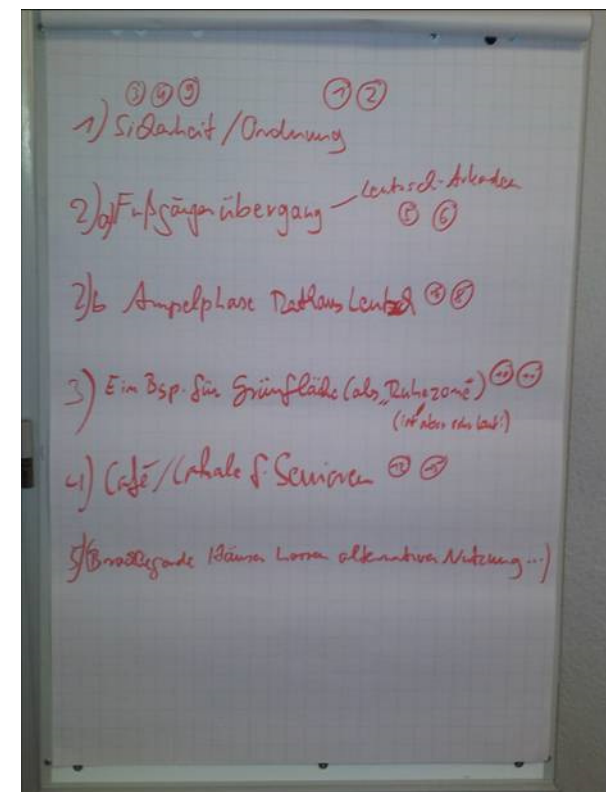 ③ ④ ⑨ ① ②
1) Sicherheit / Ordnung
2)a) Fußgängerübergang – Leutzsch-Arkaden
⑤ ⑥
2)b Ampelphase Rathaus Leutzsch ⑧
3) Ein Bsp. für Grünfläche (als „Ruhezone“)
(ist aber sehr laut!)
4) Café / Lokale f. Senioren
5) (Brachliegende Häuser alternativer Nutzung ...)